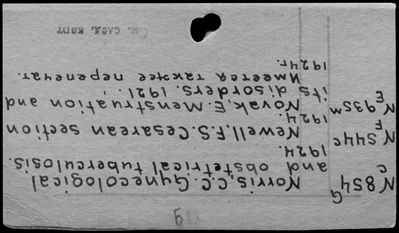 N854 Norris, C.C. Gynecological
G
C and obstetrical tuberculosis.
1924.
N544c Newell, F.S. Cesarean section
F 1924.
N935m Novak, E. Menstruation and
E its disorders. 1921.
Имеется также перепечат.
1924г.
См. след. карт